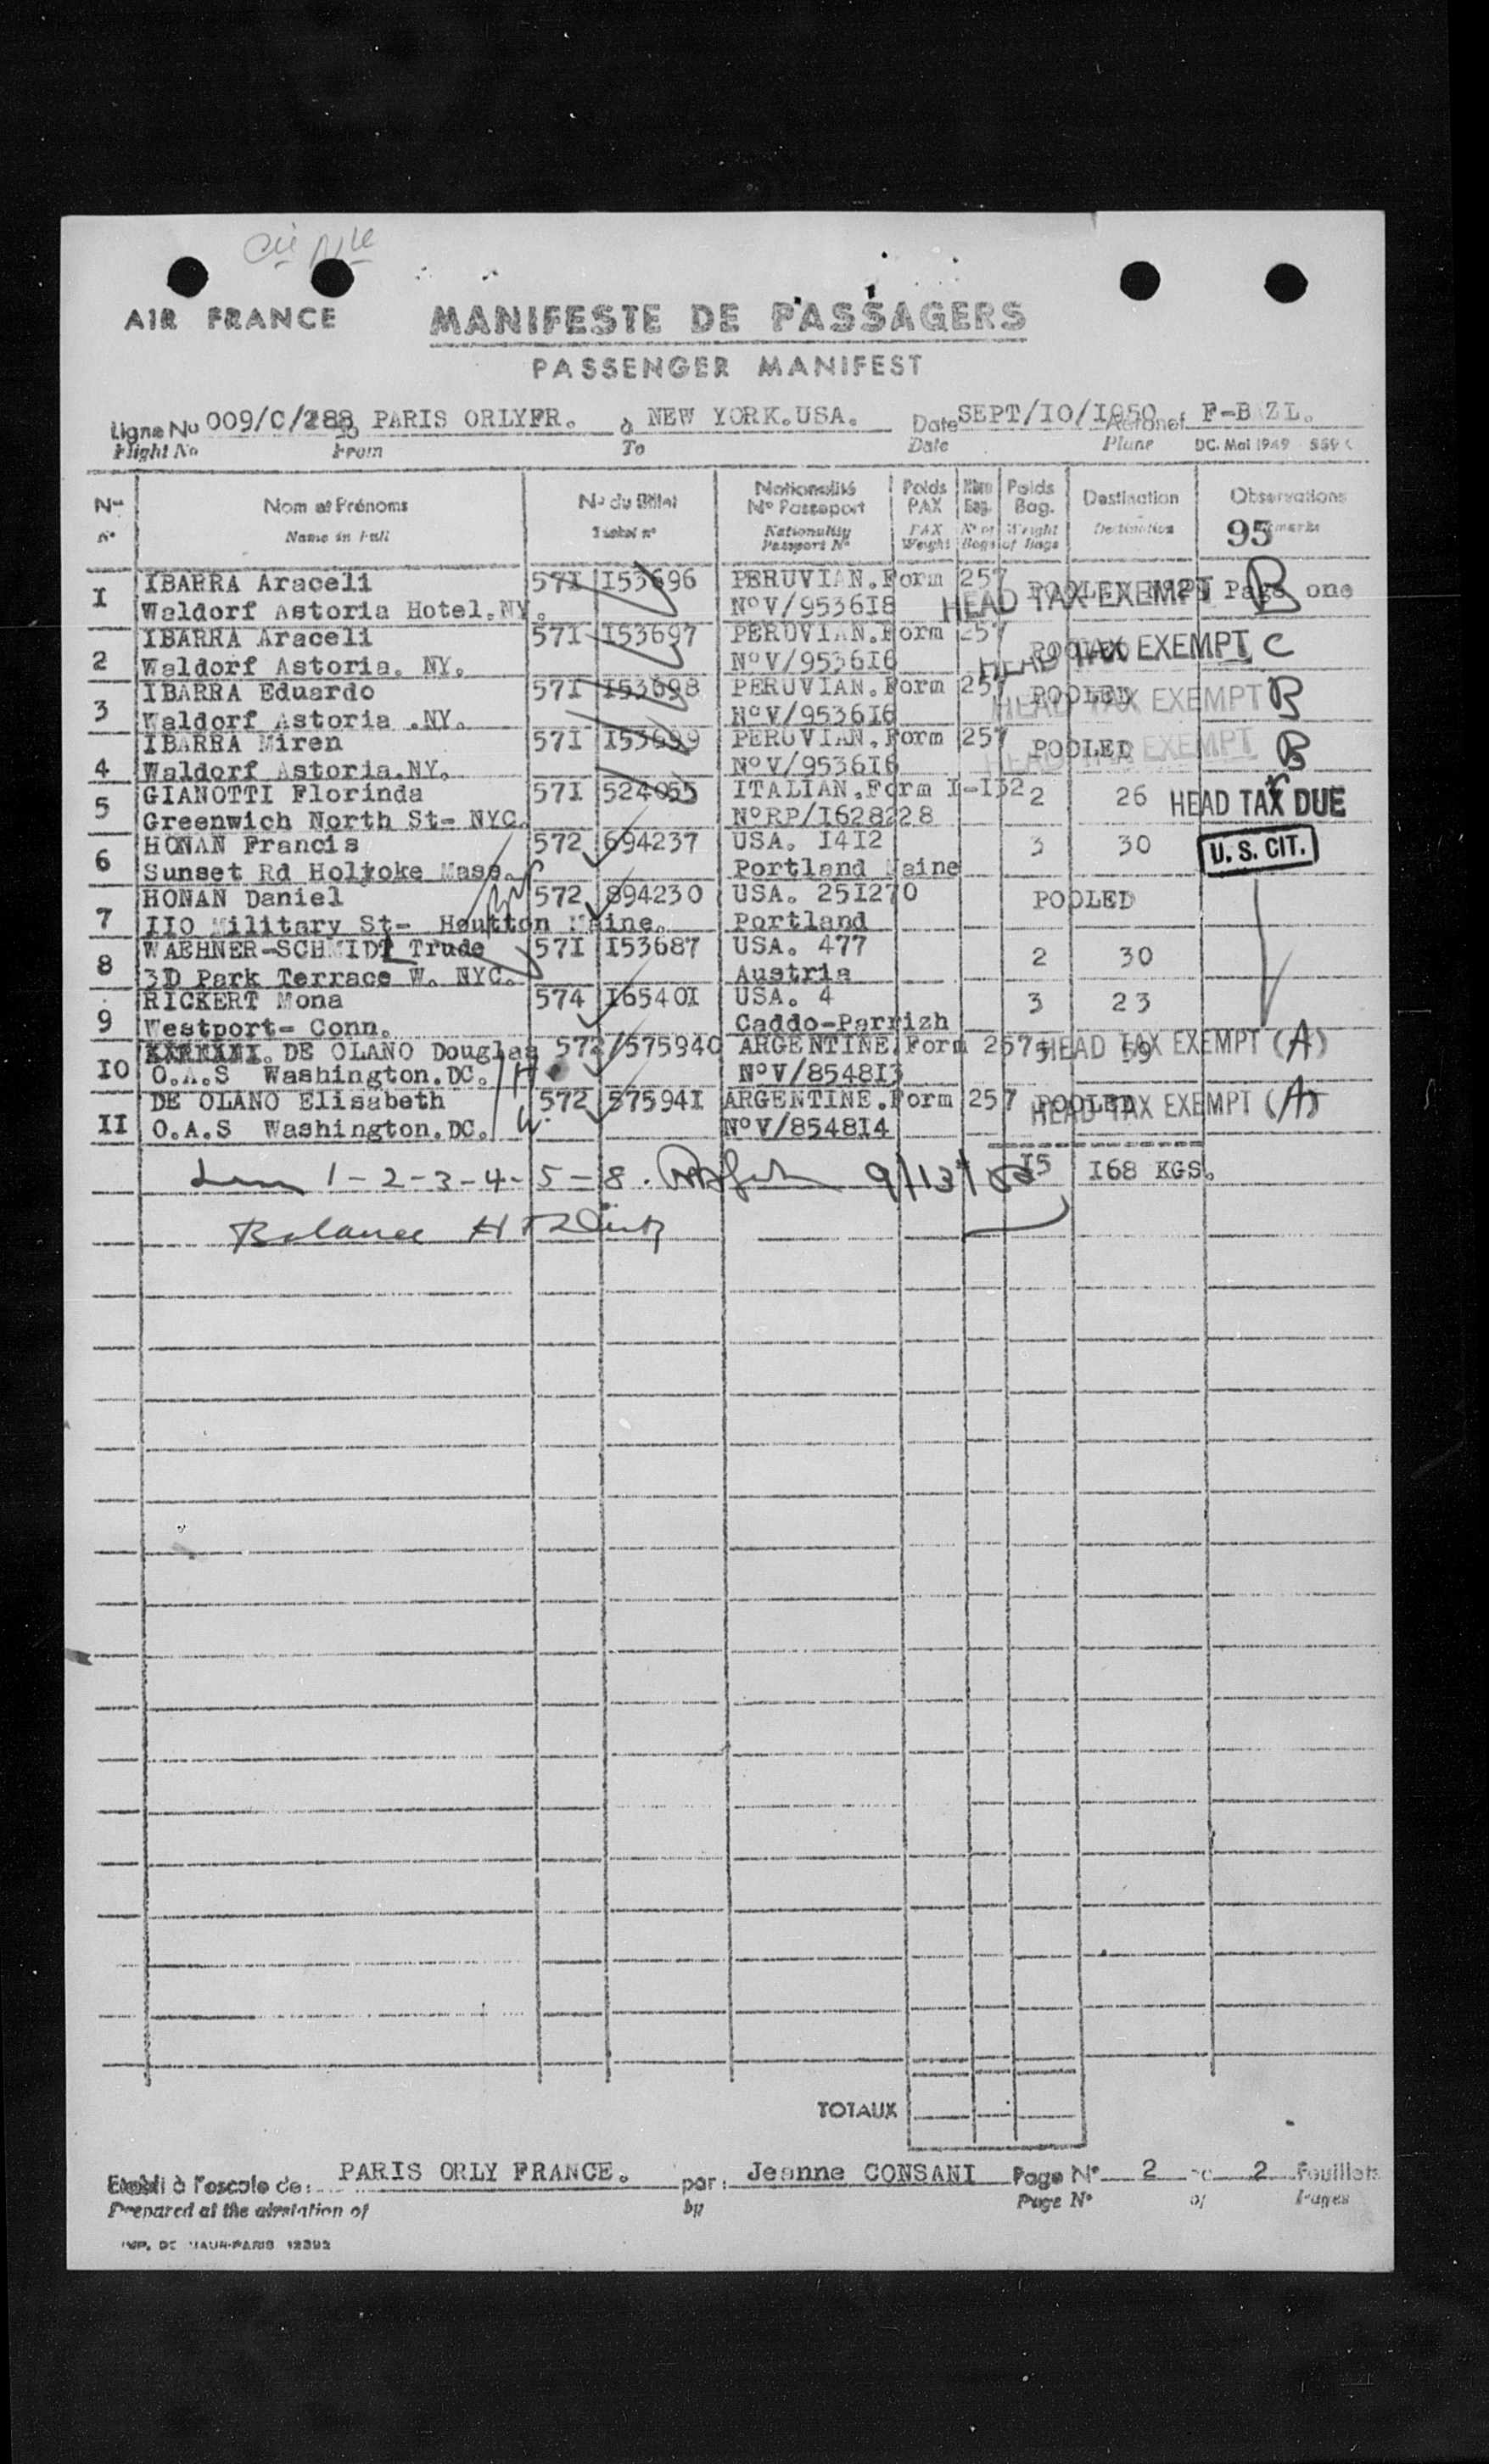 AIR FRANCE
MANIFESTE DE PASSAGERS
PASSENGER MANIFEST
Ligne No 009/C/288 PARIS ORLY FR. à NEW YORK.USA. Date SEPT/IO/I950 F-BAZL.
Flight No From To Date Plane DC. Mai 1949
No Nom et Prénoms No du Billet Nationalité No Passeport Poids PAX Nbre Bag. Poids Bag. Destination Observations
No Name in Full Ticket no Nationality Passport No PAX Weight No of Bags Weight of Bags Destination
95
I IBARRA Araceli 57I I53696 PERUVIAN.Form 257 POOLED Page one
Waldorf Astoria Hotel.NY. NoV/9536I8 HEAD TAX EXEMPT B
2 IBARRA Araceli 57I I53697 PERUVIAN.Form 257 POOLED
Waldorf Astoria. NY. NoV/9536I6 HEAD TAX EXEMPT C
3 IBARRA Eduardo 57I I53698 PERUVIAN.Form 257 POOLED
Waldorf Astoria .NY. NoV/9536I6 HEAD TAX EXEMPT B
4 IBARRA Miren 57I I53699 PERUVIAN.Form 257 POOLED
Waldorf Astoria.NY. NoV/9536I6 HEAD TAX EXEMPT B
5 GIANOTTI Florinda 57I 524055 ITALIAN.Form I-I32 2 26 HEAD TAX DUE
Greenwich North St- NYC. NoRP/I628228
6 HONAN Francis 572 694237 USA. I4I2 3 30 U. S. CIT.
Sunset Rd Holyoke Mass. Portland Maine
7 HONAN Daniel 572 894230 USA. 25I270 POOLED
IIO Military St- Houtton Maine. Portland
8 WAEHNER-SCHMIDL Trude 57I I53687 USA. 477 2 30
3D Park Terrace W. NYC. Austria
9 RICKERT Mona 574 I6540I USA. 4 3 23
Westport- Conn. Caddo-Parrizh
IO DE OLANO Douglas 572/575940 ARGENTINE.Form 257 5 59 HEAD TAX EXEMPT (A)
O.A.S Washington.DC. NoV/8548I3
II DE OLANO Elisabeth 572 57594I ARGENTINE.Form 257 POOLED HEAD TAX EXEMPT (A)
O.A.S Washington.DC. NoV/8548I4
I5 I68 KGS.
1-2-3-4-5-8. 9/13/50
Balance
TOTAUX
Etabli à l'escale de: PARIS ORLY FRANCE. par: Jeanne CONSANI Page No 2 2 Feuillets
Prepared at the airstation of by Page No of Pages
IMP. DE MAUR-PARIS 12392